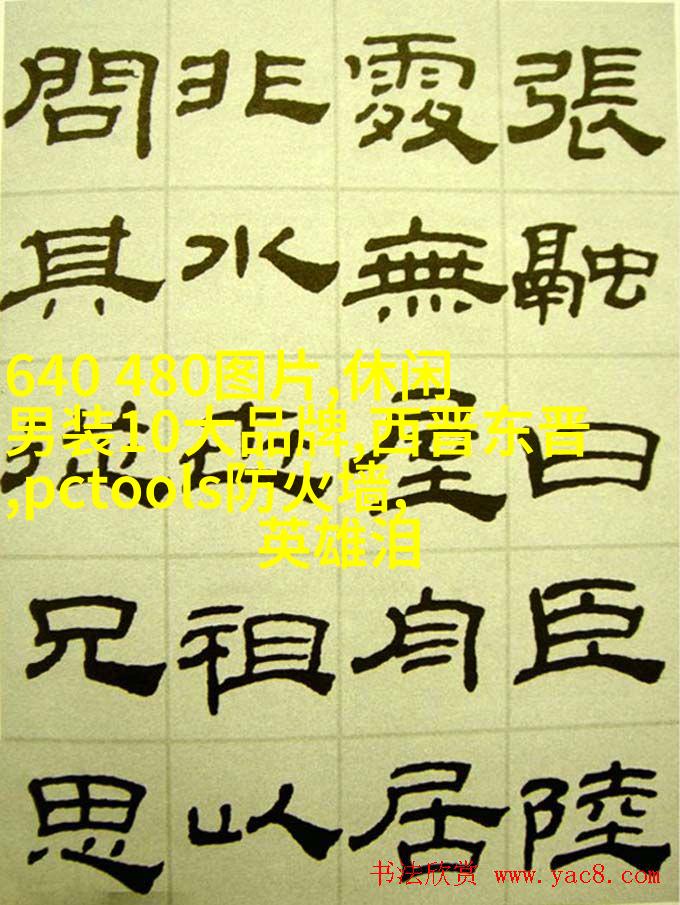 張融曰臣陸
處無屋舟居
非水祖以
問其從兄思
640 480图片,休闲
男装10大品牌,西晋东晋
,pctools防火墙,
英雄泪
书法欣赏 www.yac8.com